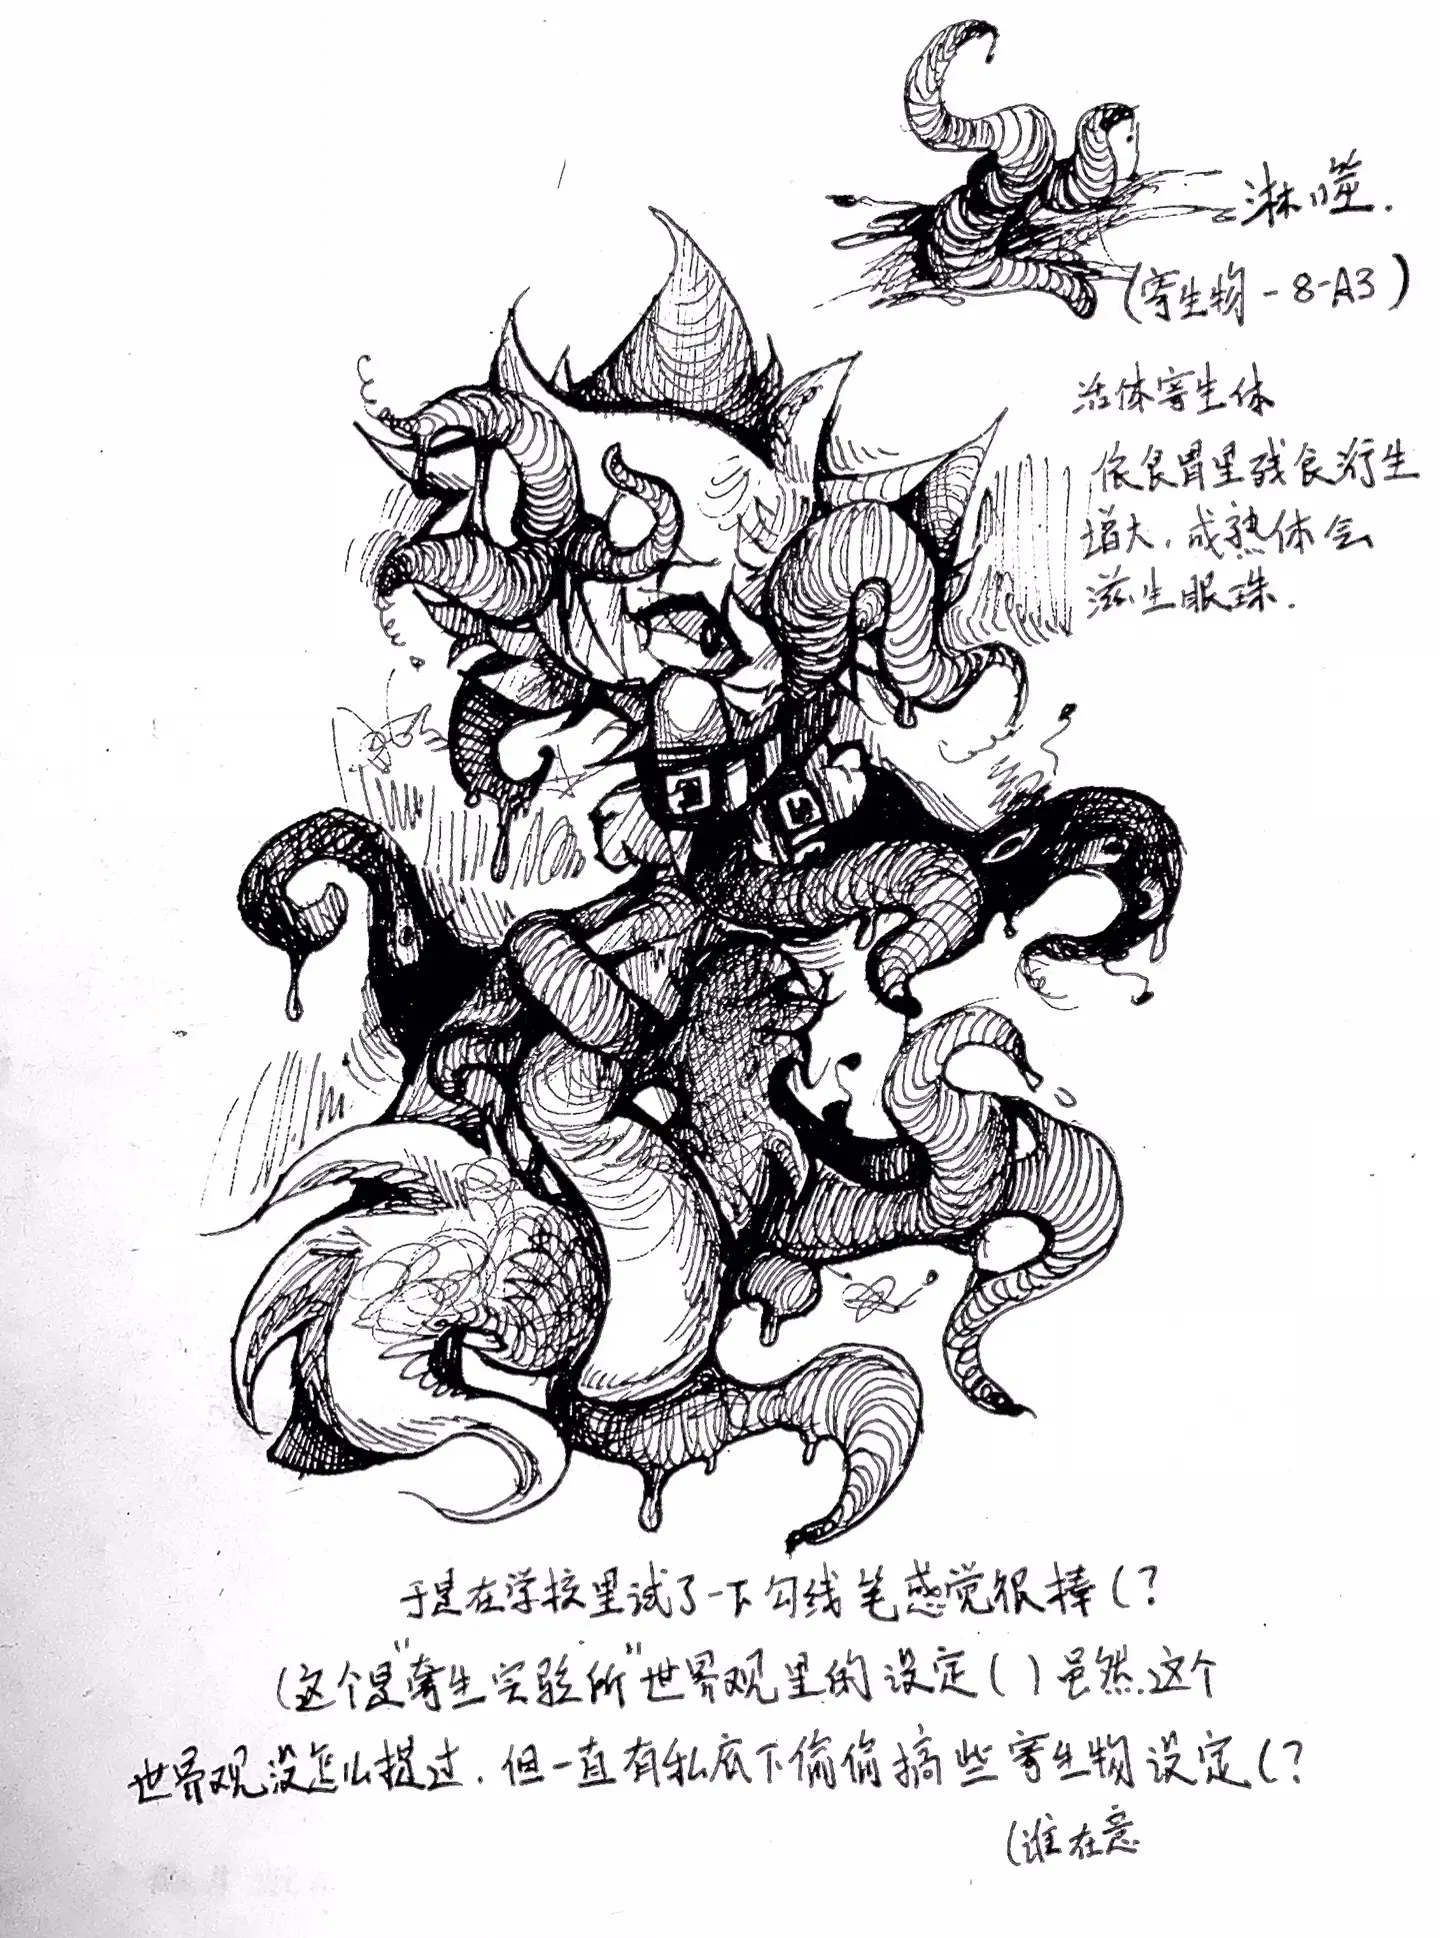 淋噬.
(寄生物-8-A3)
活体寄生体
依食胃里残食衍生
增大,成熟体会
滋生眼珠.
于是在学校里试了一下勾线笔感觉很棒(?
(这个是"寄生实验所"世界观里的设定()虽然这个
世界观没怎么提过,但一直有私底下偷偷搞些寄生物设定(?
(谁在意